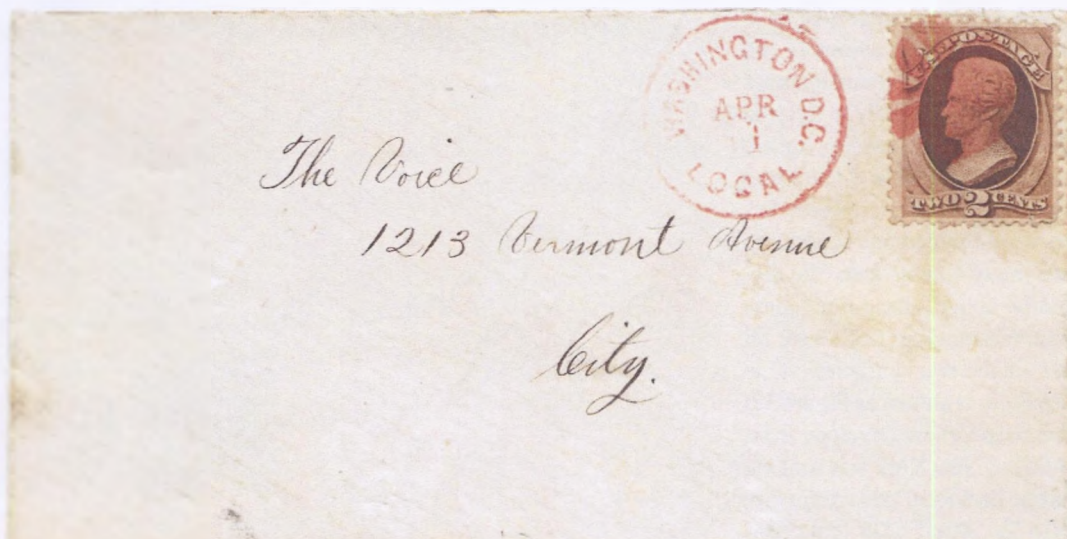 WASHINGTON D.C.
APR
1
LOCAL
U.S. POSTAGE
TWO 2 CENTS
The Voice
1213 Vermont Avenue
City.